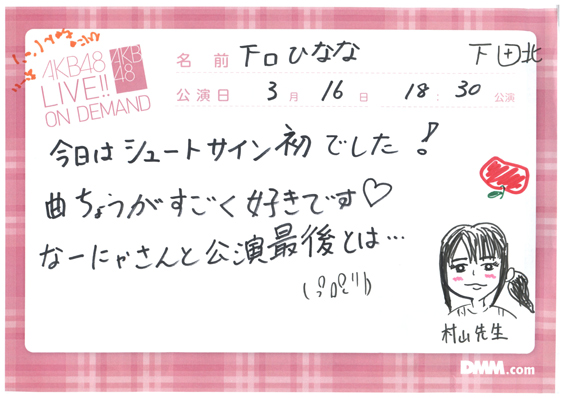 AKB48
LIVE!!
ON DEMAND
AKB
48
名前 下口ひなな
下田北
公演日 3月16日 18:30 公演
今日はシュートサイン初でした!
曲ちょうがすごく好きです♡
なーにゃさんと公演最後とは…
村山先生
DMM.com